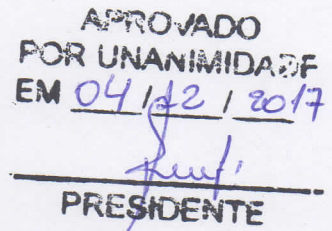 APROVADO
POR UNANIMIDADE
EM 04/12/2017
PRESIDENTE